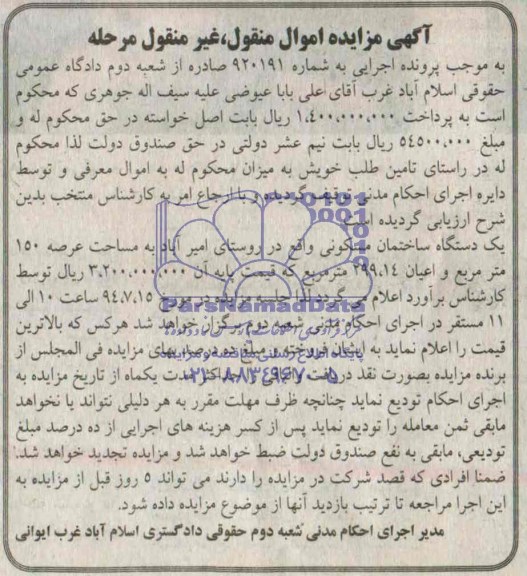 آگهی مزایده اموال منقول،غیر منقول مرحله
به موجب پرونده اجرایی به شماره ۹۲۰۱۹۱ صادره از شعبه دوم دادگاه عمومی
حقوقی اسلام آباد غرب آقای علی بابا عیوضی علیه سیف اله جوهری که محکوم
است به پرداخت ۱،۴۰۰،۰۰۰،۰۰۰ ریال بابت اصل خواسته در حق محکوم له و
مبلغ ۵۴۵۰۰،۰۰۰ ریال بابت نیم عشر دولتی در حق صندوق دولت لذا محکوم
له در راستای تامین طلب خویش به میزان محکوم له به اموال معرفی و توسط
دایره اجرای احکام مدنی توقیف گردیده و با ارجاع امر به کارشناس منتخب بدین
شرح ارزیابی گردیده است
یک دستگاه ساختمان مسکونی واقع در روستای امیر آباد به مساحت عرصه ۱۵۰
متر مربع و اعیان ۲۹۹،۱۴ مترمربع که قیمت پایه آن ۳،۲۰۰،۰۰۰،۰۰۰ ریال توسط
کارشناس برآورد اعلام می گردد لذا جلسه مزایده در مورخ ۹۴،۷،۱۵ ساعت ۱۰ الی
۱۱ مستقر در اجرای احکام مدنی شعبه دوم برگزار خواهد شد هرکس که بالاترین
قیمت را اعلام نماید به ایشان فروخته و مبلغ ده درصد بهای مزایده فی المجلس از
برنده مزایده بصورت نقد دریافت و مابقی حداکثر مدت یکماه از تاریخ مزایده به
اجرای احکام تودیع نماید چنانچه ظرف مهلت مقرر به هر دلیلی نتواند یا نخواهد
مابقی ثمن معامله را تودیع نماید پس از کسر هزینه های اجرایی از ده درصد مبلغ
تودیعی، مابقی به نفع صندوق دولت ضبط خواهد شد و مزایده تجدید خواهد شد.
ضمنا افرادی که قصد شرکت در مزایده را دارند می تواند ۵ روز قبل از مزایده به
این اجرا مراجعه تا ترتیب بازدید آنها از موضوع مزایده داده شود.
مدیر اجرای احکام مدنی شعبه دوم حقوقی دادگستری اسلام آباد غرب ایوانی
ParsNamadData
پایگاه اطلاع رسانی مناقصه و مزایده
۰۲۱-۸۸۳۴۹۶۷۰-۵